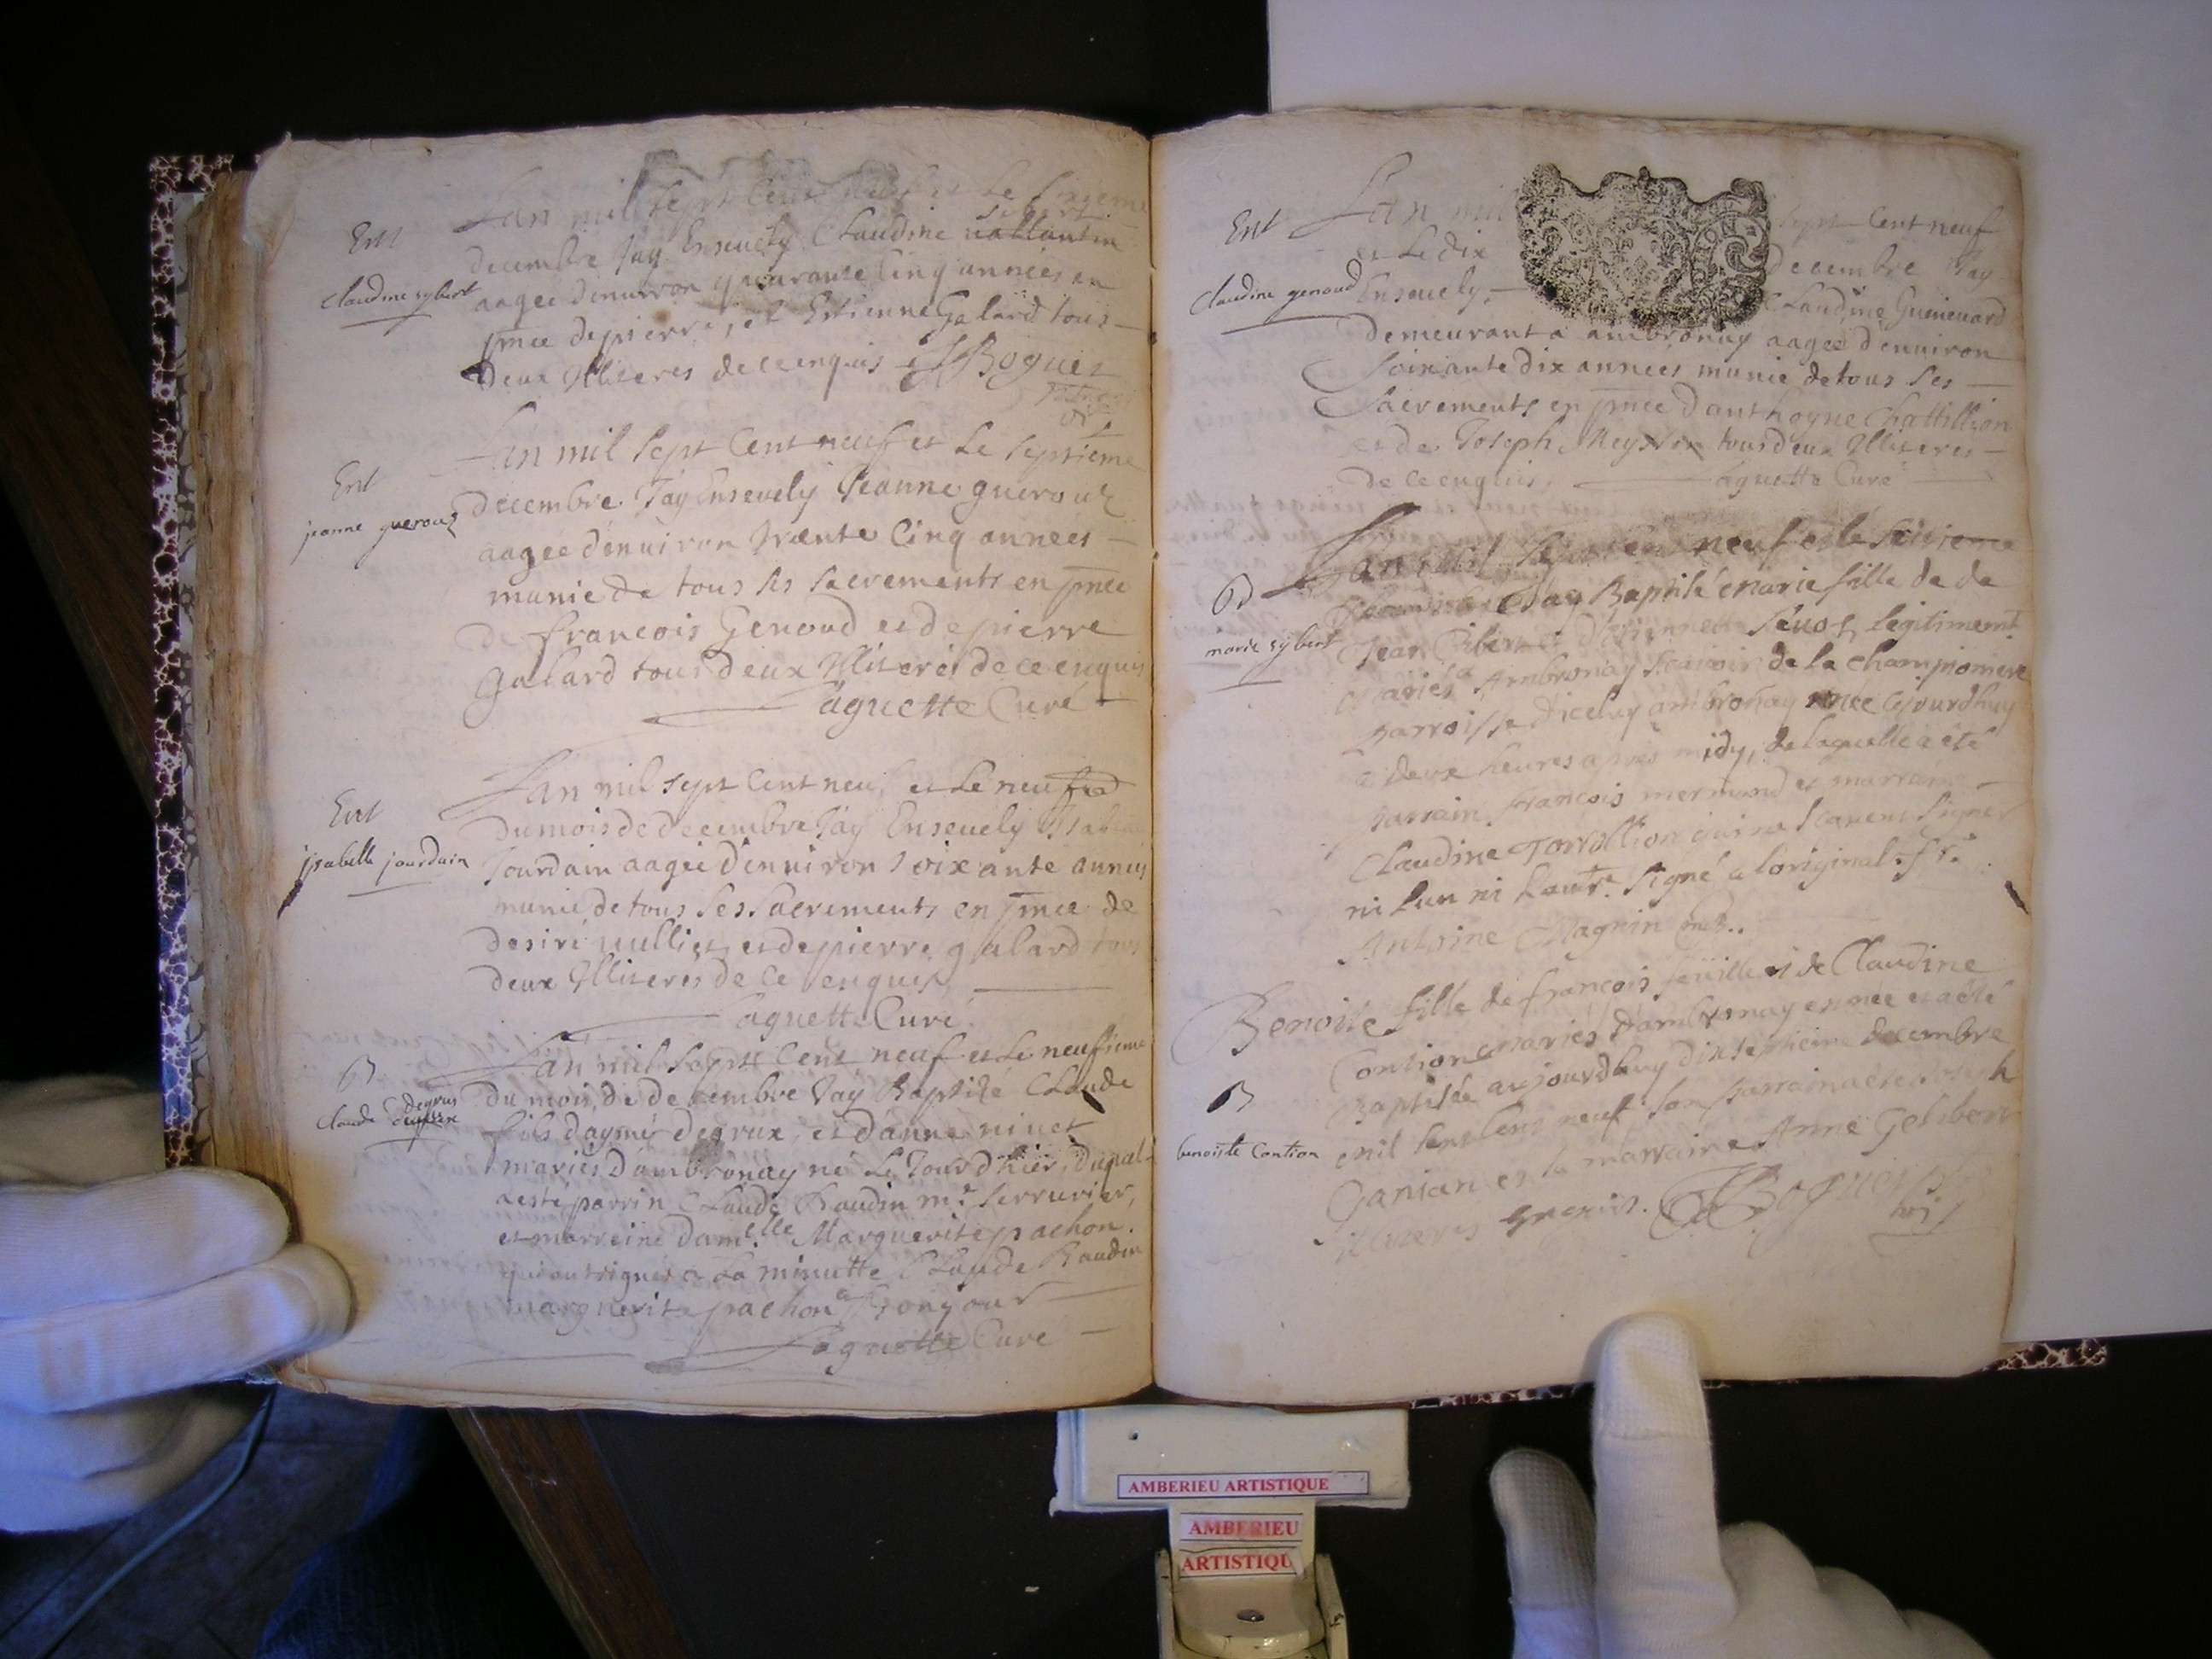 Ent
claudine sybert
Lan mil sept Cent neuf et Le
decembre Jay Ensevely Claudine vallantin
sibert
aagee denuiron quarante Cinq annees en
pnce de pierre, et Estienne Galard tous
deux Illiteres de ce enquis Boguet
vic
Ent
jeanne guerouz
Lan mil sept Cent neuf et Le septieme
decembre Jay Ensevely Jeanne guerouz
aagee denuiron trente Cinq annees
munie de tous ses sacrements en pnce
de francois Genoud et de pierre
Galard tous deux Illiteres de ce enquis
Laguette Curé
Ent
jsabelle jourdain
Lan mil sept Cent neuf et Le neuf
du mois de decembre Jay Ensevely
Jourdain aagée d'enuiron soixante annees
munie de tous ses sacrements en pnce de
desiré et de pierre galard tous
deux Illiteres de ce enquis
Laguette Curé
B
claude degrus
Lan mil Sept Cent neuf et Le neufieme
du mois de decembre Jay Baptisé Claude
fils d'aymé degrux, et d'anne ninet
mariés D'ambronay né Le Jour d'hier, duquel
a esté parrin Claude Baudin me. serrurier,
et marreine Dam.elle Marguerite pachon.
qui ont signés a La minutte Claude Baudin
marguerite pachon Bonjour
Laguette Curé
Ent
claudine genoud
Lan mil sept Cent neuf
et Le dix Decembre Jay
Ensevely Claudine Guinouard
demeurant a ambronay aagée d'enuiron
soixante dix annees munie de tous ses
sacrements en pnce d'anthoyne Chattillion
et de Joseph tous deux Illiteres
de ce enquis. Laguette Curé
B
marie sybert
Lan mil Sept Cent neuf et le
Jay Baptisé marie fille de de
Jean legitiment
mariés Ambronay de la Championiere
Parroisse d'iceluy ambronay née Cejourdhuy
a deux heures apres midy, de laquelle a été
parrain francois mermand et marraine
Claudine qui ne scauent signer
ni l'un ni L'autre. Signé a l'original. fr.
Antoine Magnin
B
benoiste Contion
Benoite fille de francois et de Claudine
Contion mariés d'ambronay est née et a été
Baptisée aujourdhuy dixseptieme decembre
mil sept Cent neuf, son parrain a été Joseph
Janian et la marraine Anne
illiteres Boguet
vic
AMBERIEU ARTISTIQUE
AMBERIEU
ARTISTIQU